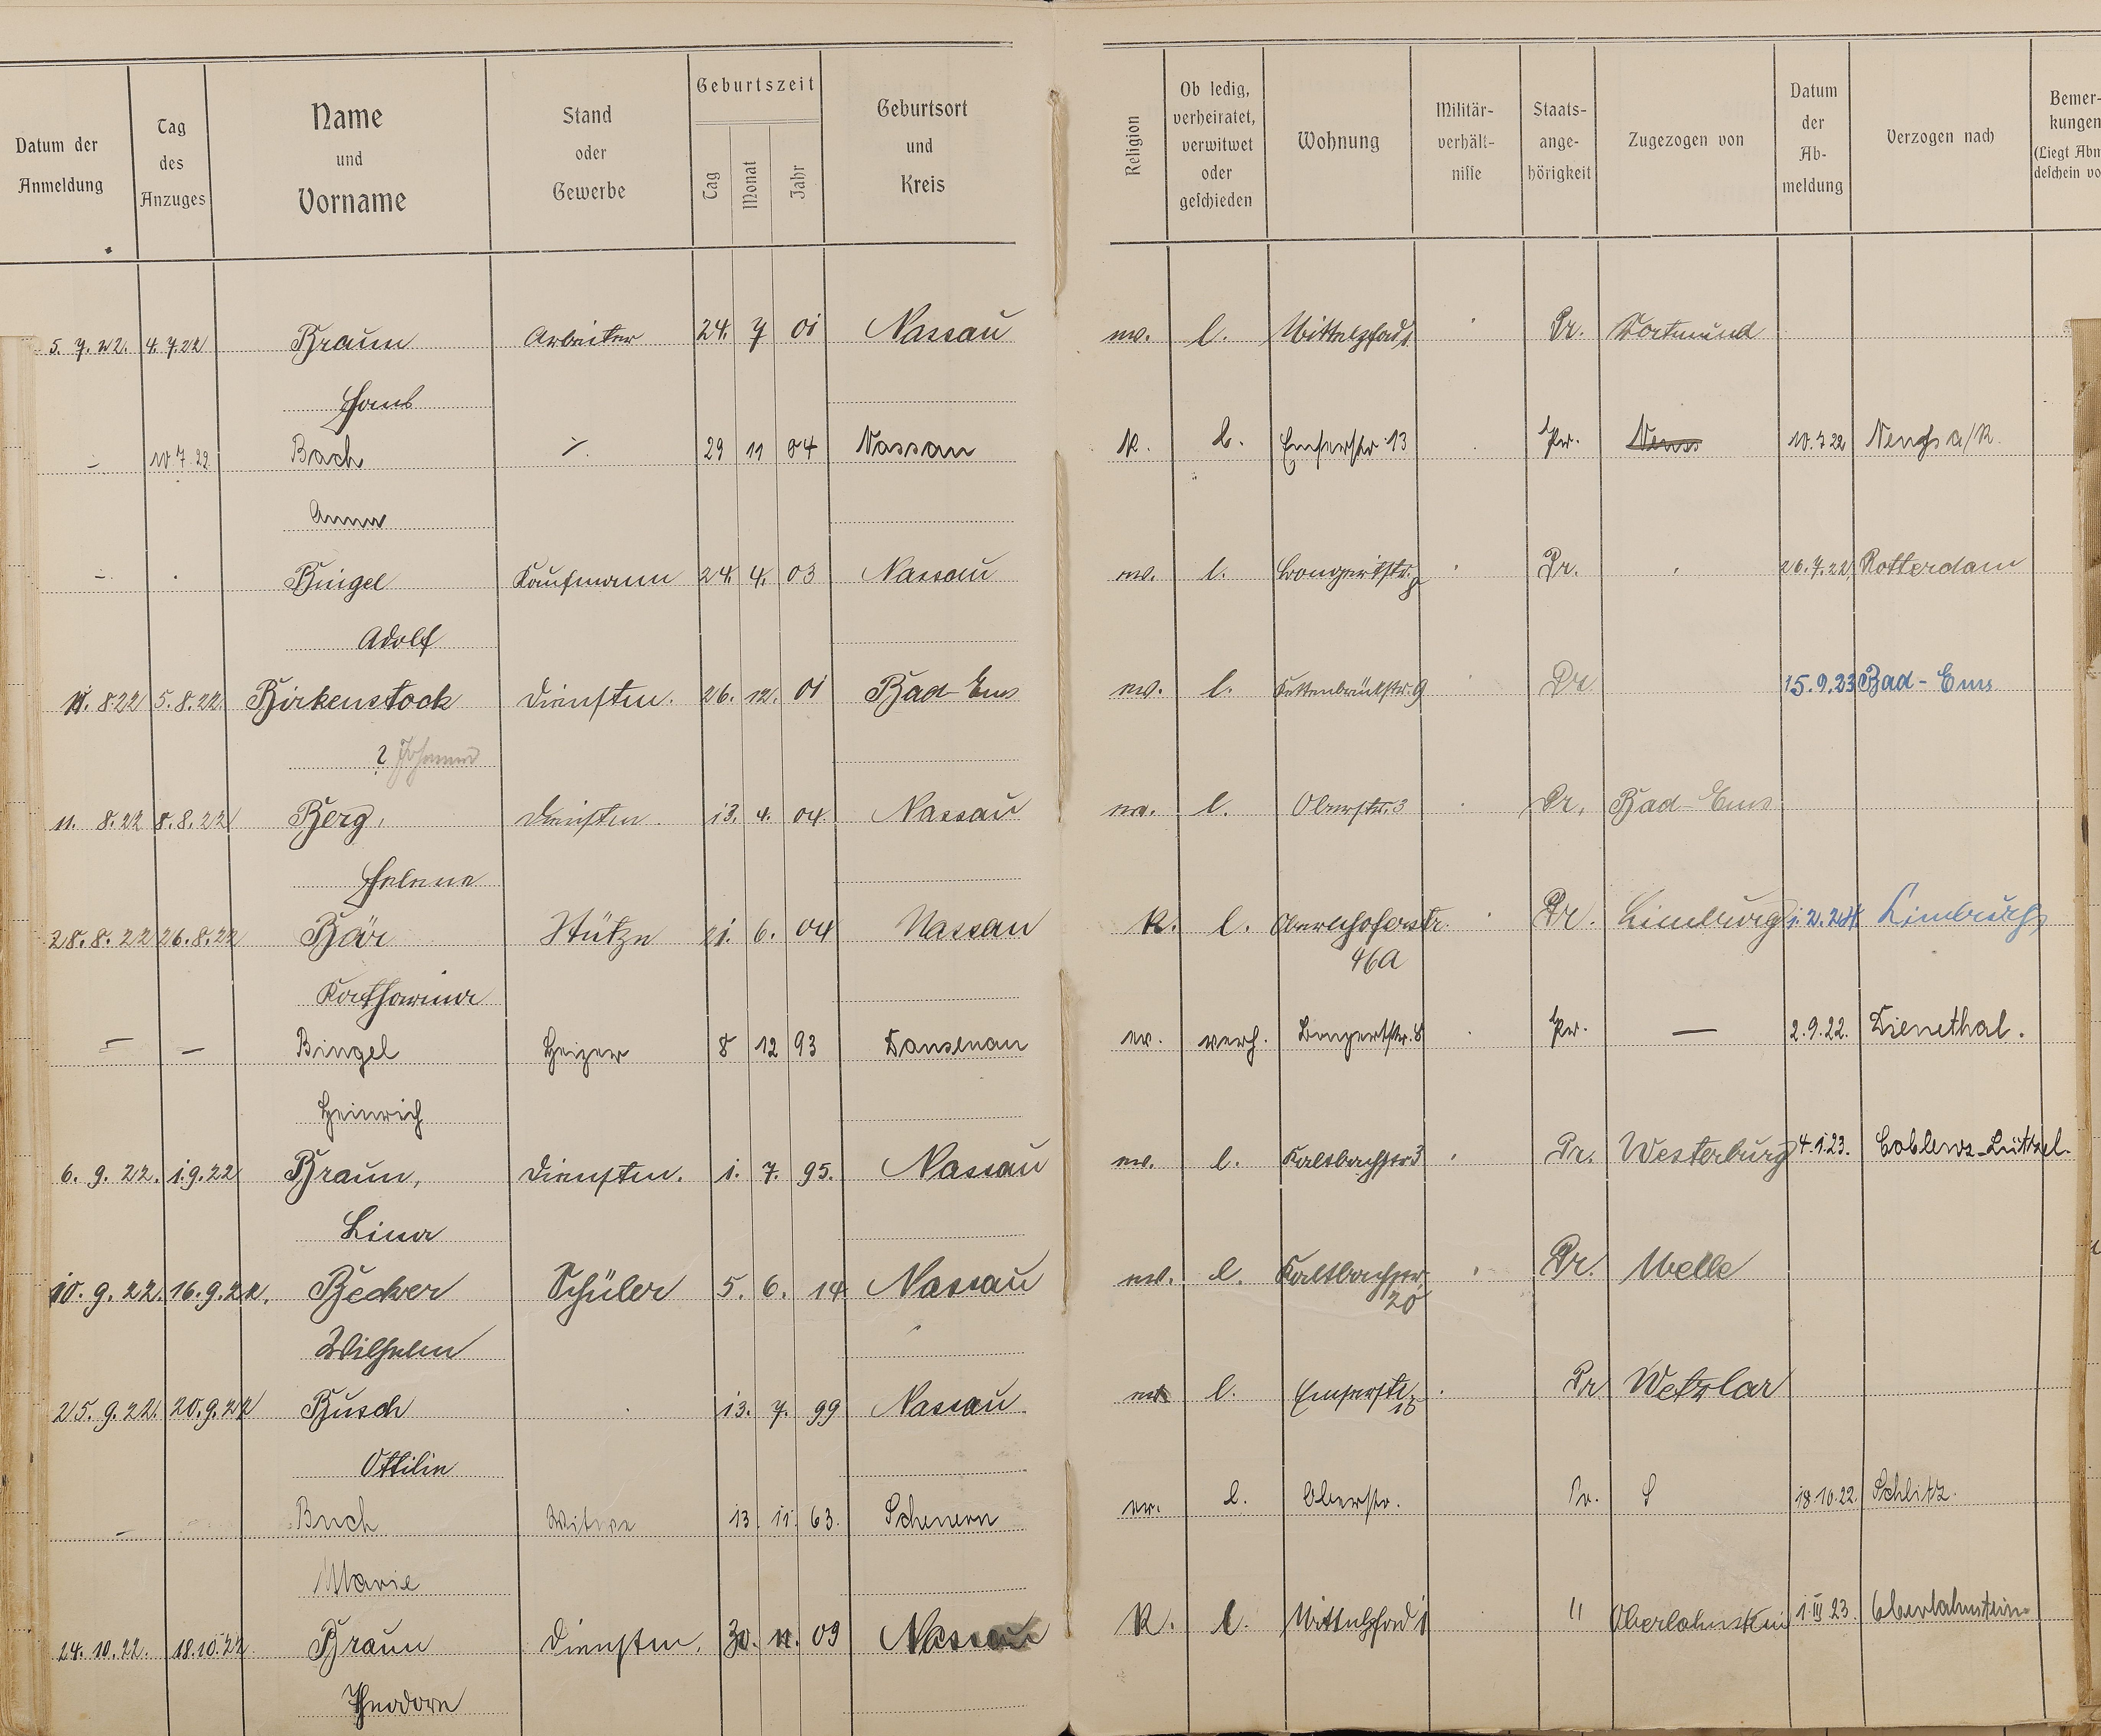 Datum der Anmeldung | Tag des Anzuges | Name und Vorname | Stand oder Gewerbe | Geburtszeit Tag Monat Jahr | Geburtsort und Kreis | Religion | Ob ledig, verheiratet, verwitwet oder geschieden | Wohnung | Militär-verhält-nisse | Staats-ange-hörigkeit | Zugezogen von | Datum der Ab-meldung | Verzogen nach | Bemer-kungen (Liegt Abm deschein vo
5. 7. 22. 4.7.22 Braun Arbeiter 24. 7 01 Nassau ev. l. Mittelpfad 1 Pr. Dortmund
Hans
– 10.7.22 Bach 29 11 04 Nassau K. l. Emserstr. 13 Pr. 10.7.22
Anna
– Bingel Kaufmann 24. 4. 03 Nassau ev. l. Pr. 26.7.22 Rotterdam
Adolf
8.22 5.8.22 Birkenstock Diensttm. 26. 12. 01 Bad-Ems ev. l. Kettenbrückstr. 9 Pr 15.9.23 Bad-Ems
? Johanna
11. 8.22 8.8.22 Berg, Diensttm. 13. 4. 04 Nassau ev. l. Oberstr. 3 Pr. Bad-Ems
Helene
28.8.22 26.8.22 Bär Stütze 21. 6. 04 Nassau K. l. Obernhoferstr. Pr. Limburg 1.2.24. Limburg
46A
Katharina
– – Bingel Heizer 8 12 93 Dausenau ev. verh. Bongertstr. 8 Pr. – 2.9.22. Dienethal.
Heinrich
6. 9. 22. 1.9.22 Braun, Diensttm. 1. 7. 95. Nassau ev. l. Kaltbachstr 3 Pr. Westerburg 4.1.23. Coblenz-Lützel.
Lina
10. 9. 22. 16.9.22. Becker Schüler 5. 6. 14 Nassau ev. l. Kaltbachstr. Pr. Melle
20
Wilhelm
25. 9. 22. 20.9.22 Busch 13. 7. 99 Nassau. l. Emserstr. Pr Wetzlar
Ottilie
– Buch Witwe 13. 11. 63. Scheuern ev. l. Oberstr. Pr. 18.10.22. Schlitz.
Marie
24. 10. 22. 18.10.22 Braun Diensttm. 30. 11. 09 Nassau K. l. Mittelpfad 1 " Oberlahnstein 1.III.23. Oberlahnstein
Theodora